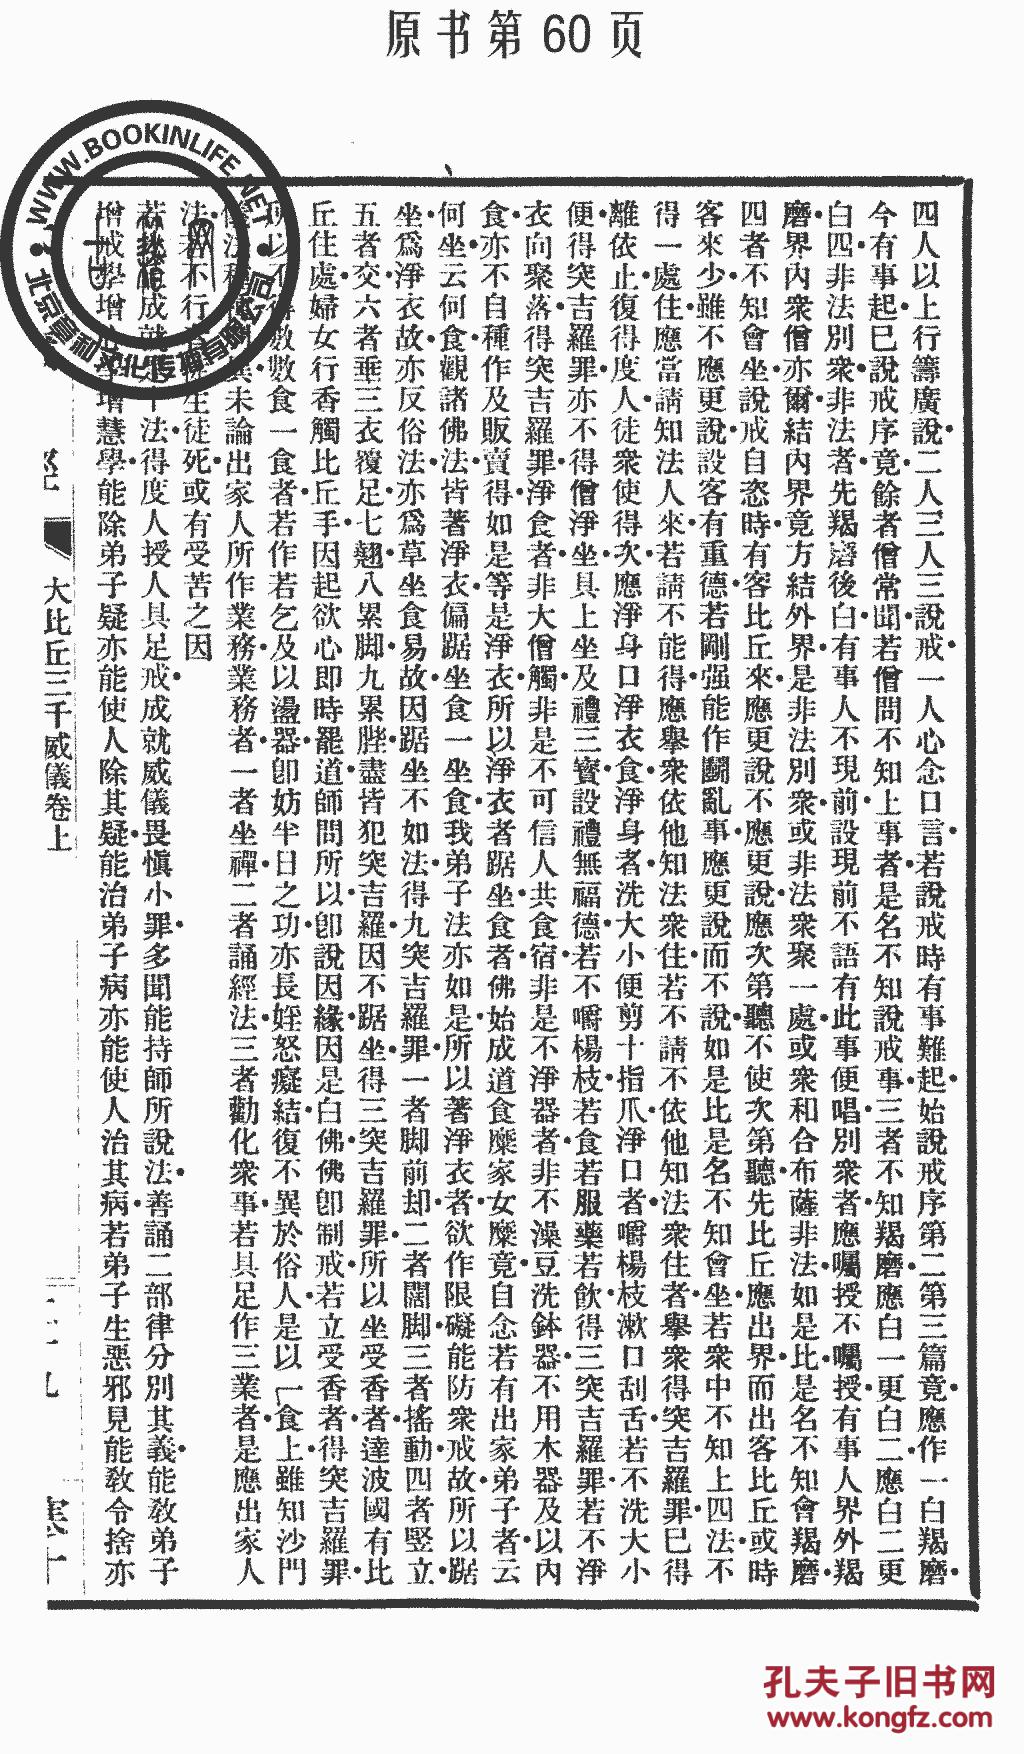 原书第 60 页
四人以上行籌廣說二人三人三說戒一人心念口言若說戒時有事難起始說戒序第二第三篇竟應作一白羯磨
今有事起巳說戒序竟餘者僧常聞若僧問不知上事者是名不知說戒事三者不知羯磨應白一更白二應白二更
白四非法別衆非法者先羯磨後白有事人不現前設現前不語有此事便唱別衆者應囑授不囑授有事人界外羯
磨界內衆僧亦爾結內界竟方結外界是非法別衆或非法衆聚一處或衆和合布薩非法如是比是名不知會羯磨
四者不知會坐說戒自恣時有客比丘來應更說不應更說應次第聽不使次第聽先比丘應出界而出客比丘或時
客來少雖不應更說設客有重德若剛强能作鬬亂事應更說而不說如是比是名不知會坐若衆中不知上四法不
得一處住應當請知法人來若請不能得應舉衆依他知法衆住若不請不依他知法衆住者舉衆得突吉羅罪巳得
離依止復得度人徒衆使得次應淨身口淨衣食淨身者洗大小便剪十指爪淨口者嚼楊枝漱口刮舌若不洗大小
便得突吉羅罪亦不得僧淨坐具上坐及禮三寳設禮無福德若不嚼楊枝若食若服藥若飮得三突吉羅罪若不淨
衣向聚落得突吉羅罪淨食者非大僧觸非是不可信人共食宿非是不淨器者非不澡豆洗鉢器不用木器及以內
食亦不自種作及販賣得如是等是淨衣所以淨衣者踞坐食者佛始成道食糜家女糜竟自念若有出家弟子者云
何坐云何食觀諸佛法皆著淨衣偏踞坐食一坐食我弟子法亦如是所以著淨衣者欲作限礙能防衆戒故所以踞
坐爲淨衣故亦反俗法亦爲草坐食易故因踞坐不如法得九突吉羅罪一者脚前却二者闊脚三者搖動四者竪立
五者交六者垂三衣覆足七翹八累脚九累䏶盡皆犯突吉羅因不踞坐得三突吉羅罪所以坐受香者達波國有比
丘住處婦女行香觸比丘手因起欲心卽時罷道師問所以卽說因緣因是白佛佛卽制戒若立受香者得突吉羅罪
所以不得數數食一食者若作若乞及以盪器卽妨半日之功亦長婬怒癡結復不異於俗人是以一食上雖知沙門
未論出家人所作業務業務者一者坐禪二者誦經法三者勸化衆事若具足作三業者是應出家人
法者不行生徒死或有受苦之因
若成就十法得度人授人具足戒成就威儀畏愼小罪多聞能持師所說法善誦二部律分別其義能敎弟子
增戒學增學增慧學能除弟子疑亦能使人除其疑能治弟子病亦能使人治其病若弟子生惡邪見能敎令捨亦
大比丘三千威儀卷上
WWW.BOOKINLIFE.NET
孔夫子旧书网
www.kongfz.com